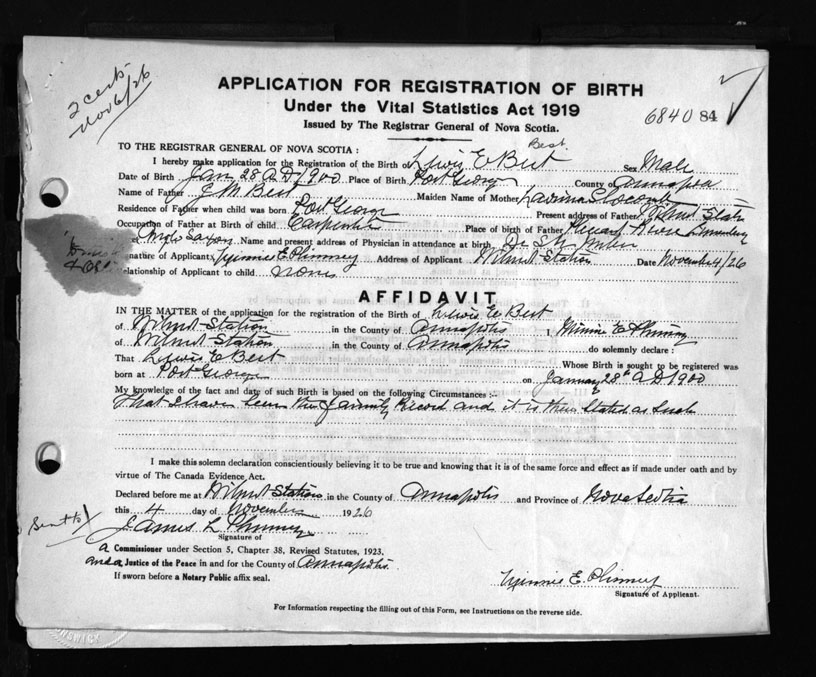 2 certs
Nov 6/26
APPLICATION FOR REGISTRATION OF BIRTH
Under the Vital Statistics Act 1919
Issued by The Registrar General of Nova Scotia.
6840 84
TO THE REGISTRAR GENERAL OF NOVA SCOTIA :
Best
I hereby make application for the Registration of the Birth of Lewis E Best Sex Male
Date of Birth Jan 28 A D 1900 Place of Birth Port George County of Annapolis
Name of Father J M Best Maiden Name of Mother Lavinia Slocomb
Residence of Father when child was born Port George Present address of Father Wilmot Station
Occupation of Father at Birth of child Carpenter Place of birth of Father
Anglo Saxon Name and present address of Physician in attendance at birth Dr S N
Signature of Applicant Minnie E Phinney Address of Applicant Wilmot Station Date November 4/26
Relationship of Applicant to child none
AFFIDAVIT
IN THE MATTER of the application for the registration of the Birth of Lewis E Best
of Wilmot Station in the County of Annapolis I, Minnie E Phinney
of Wilmot Station in the County of Annapolis do solemnly declare :
That Lewis E Best Whose Birth is sought to be registered was
born at Port George on January 28th A D 1900
My knowledge of the fact and date of such Birth is based on the following Circumstances :-
That I have seen the family Record and it is there Stated as Such
I make this solemn declaration conscientiously believing it to be true and knowing that it is of the same force and effect as if made under oath and by
virtue of The Canada Evidence Act.
Declared before me at Wilmot Station in the County of Annapolis and Province of Nova Scotia
this 4 day of November 1926
Sent to
James L Phinney
Signature of
a Commissioner under Section 5, Chapter 38, Revised Statutes, 1923.
and a Justice of the Peace in and for the County of Annapolis
If sworn before a Notary Public affix seal.
Minnie E. Phinney
Signature of Applicant.
For Information respecting the filling out of this Form, see Instructions on the reverse side.